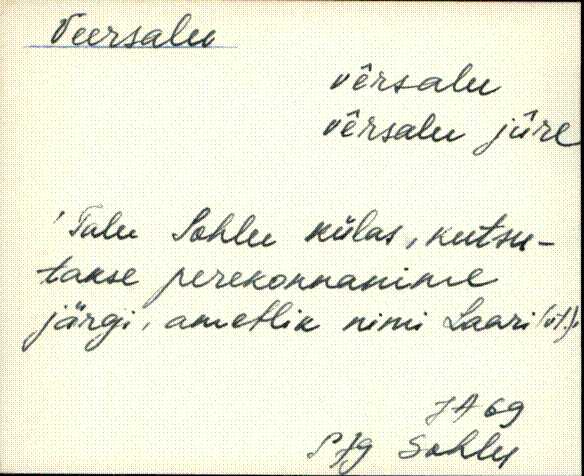 Veersalu
vêrsalu
vêrsalu jûre
'Talu Sohlu külas, kutsu-
takse perekonnanime
järgi, ametlik nimi Laari (vt.)'
JA 69
PJg Sohlu